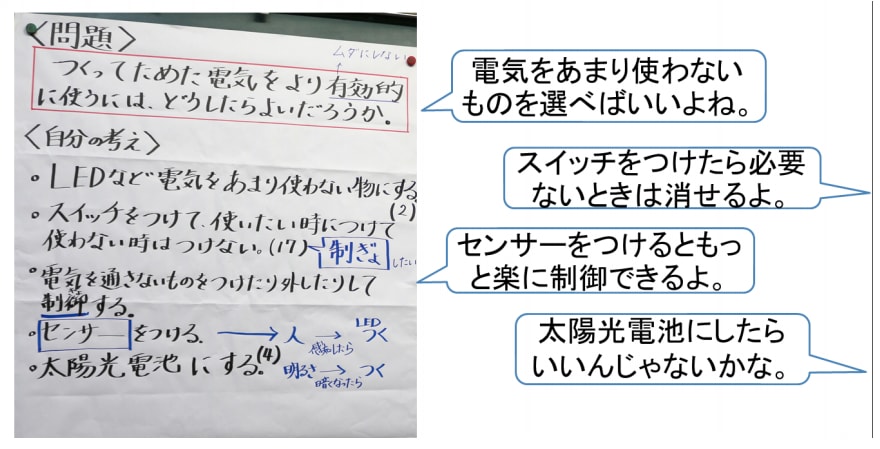 〈問題〉
ムダにしない
つくってためた電気をより有効的
に使うには、どうしたらよいだろうか。
〈自分の考え〉
・LEDなど電気をあまり使わない物にする
(2)
・スイッチをつけて、使いたい時につけて
使わない時はつけない。(17) 制ぎょ したい
・電気を通さないものをつけたり外したりして
制御する。
・センサーをつける。 → 人 → LED つく
感知したら
・太陽光電池にする。(4) 明るさ → つく
暗くなったら
電気をあまり使わない
ものを選べばいいよね。
スイッチをつけたら必要
ないときは消せるよ。
センサーをつけるともっ
と楽に制御できるよ。
太陽光電池にしたら
いいんじゃないかな。